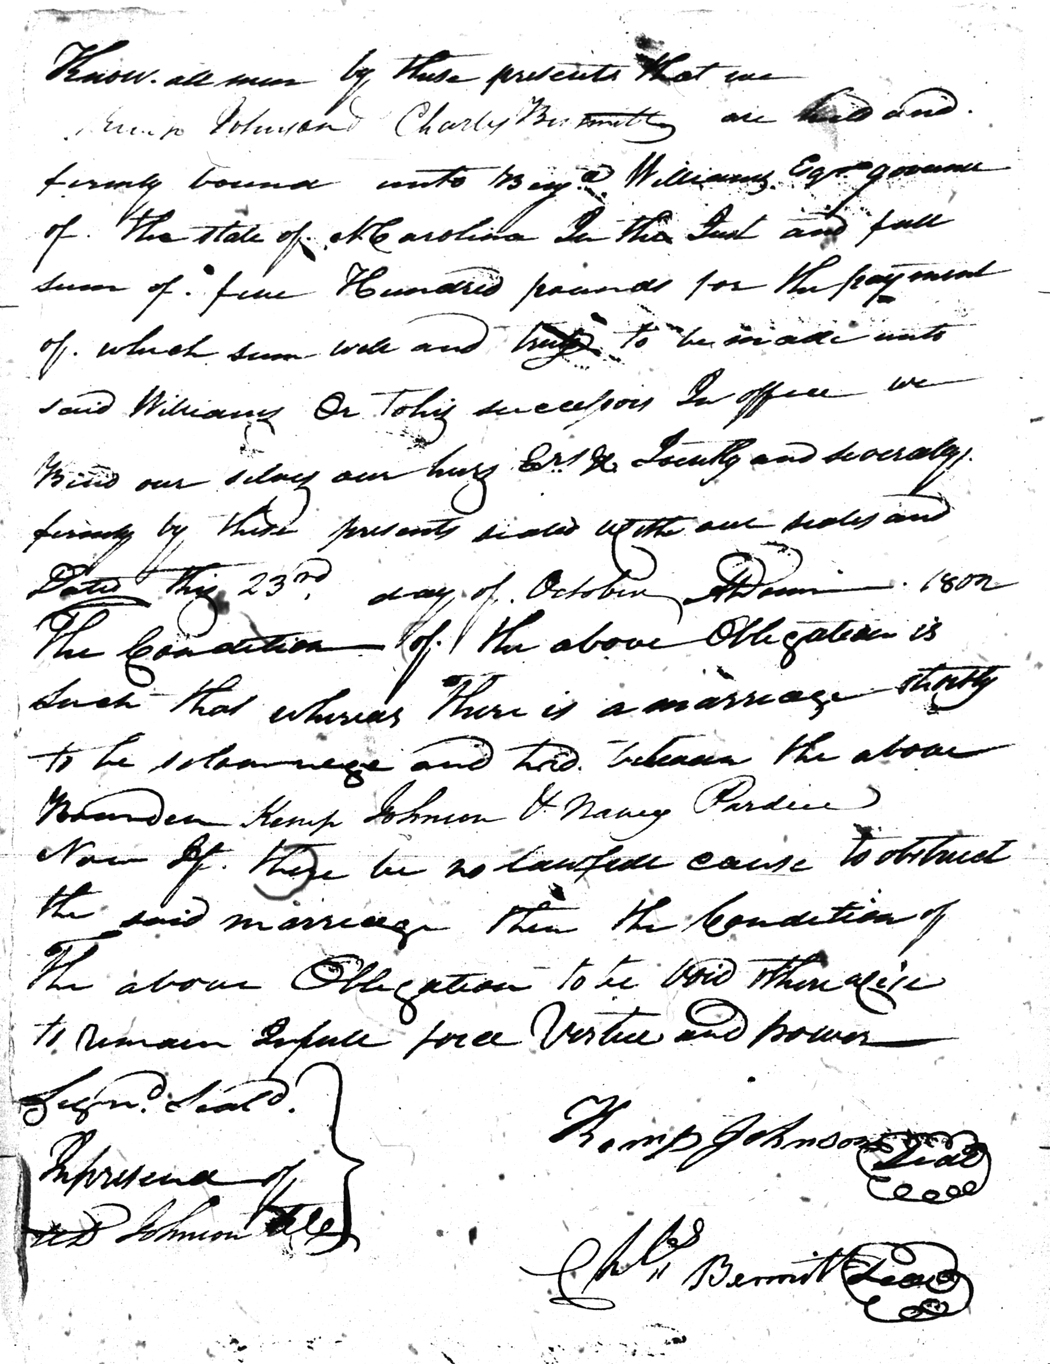 Know all men by these presents that we
Kemp Johnson Charles Bennitt are held and
firmly bound unto Benj.a Williams Eqr. governer
of the state of N Carolina In the Just and full
sum of five Hundred pounds for the payment
of which sum well and truly to be made unto
said Williams Or to his successors In office we
Bind our selves our heirs Ers & Jointly and severaly
firmly by these presents sealed with our seales and
Dated this 23rd day of October ADomini 1802
The Condition of the above Obligation is
such that whereas There is a marriage shortly
to be solamnege and had between the above
Bounden Kemp Johnson & Nancy Pardue
Now If there be no lawfull cause to obstruct
the said marriage then the Condition of
The above Obligation to be void otherwise
to remain In full force Virtue and power
Sign'd Seal'd
In presence of
Johnson
Kemp Johnson Seal
Chls Bennitt Seal